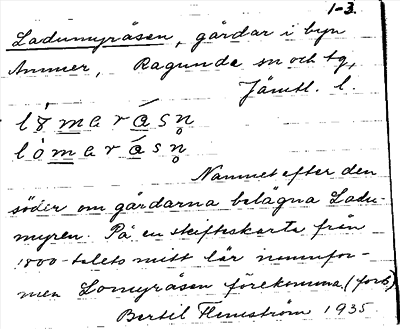 1-3.
Ladumyråsen, gårdar i byn
Ammer, Ragunda sn och tg,
Jämtl. l.
Namnet efter den
söder om gårdarna belägna Ladu-
myren. På en skifteskarta från
1800-talets mitt lär namnfor-
men Lomyråsen förekomma (forts)
Bertil Flemström 1935